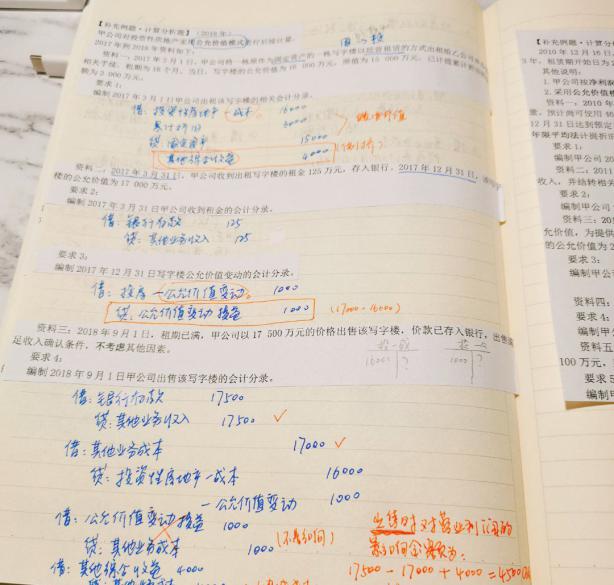 【补充例题·计算分析题】(2018年)
甲公司对投资性房地产采用公允价值模式进行后续计量。
2017年到2018年资料如下:
资料一:2017年3月1日,甲公司将一栋原作为固定资产的一栋写字楼以经营租赁的方式出租给乙公司
相关手续,租期为18个月。当日,写字楼的公允价值为16 000万元,原值为15 000万元,已计提累计折旧
额为3 000万元。
要求1:
编制2017年3月1日甲公司出租该写字楼的相关会计分录。
借:投资性房地产-成本 16000
累计折旧 3000
贷:固定资产 15000
其他综合收益 4000
资料二:2017年3月31日,甲公司收到出租写字楼的租金125万元,存入银行。2017年12月31日,该写字
楼的公允价值为17 000万元。
要求2:
编制2017年3月31日甲公司收到租金的会计分录。
借:银行存款 125
贷:其他业务收入 125
要求3:
编制2017年12月31日写字楼公允价值变动的会计分录。
借:投房-公允价值变动 1000
贷:公允价值变动损益 1000 (17000-16000)
资料三:2018年9月1日,租期已满,甲公司以17 500万元的价格出售该写字楼,价款已存入银行,出售满
足收入确认条件,不考虑其他因素。
要求4:
编制2018年9月1日甲公司出售该写字楼的会计分录。
借:银行存款 17500
贷:其他业务收入 17500 ✓
借:其他业务成本 17000 ✓
贷:投资性房地产-成本 16000
-公允价值变动 1000
借:公允价值变动损益 1000
贷:其他业务成本 1000 (不影响)
借:其他综合收益 4000
出售时对营业利润的
影响金额为:
17500-17000+4000=4500
【补充例题·计算分
2010年12月16日
3年,租赁期开始日为2
其他说明:
1.甲公司按净利
2.采用公允价值模
资料一:2010年
量,预计尚可使用
12月31日达到预定
年限平均法计提折
要求1:
编制甲公司20
资料二:2011
收入,并结转相关
要求2:
编制甲公司
资料三:20
允价值,为提供
的公允价值为2
要求3:
编制甲公
资料四:
要求4:
编制甲
资料五
100万元,
要求5
编制